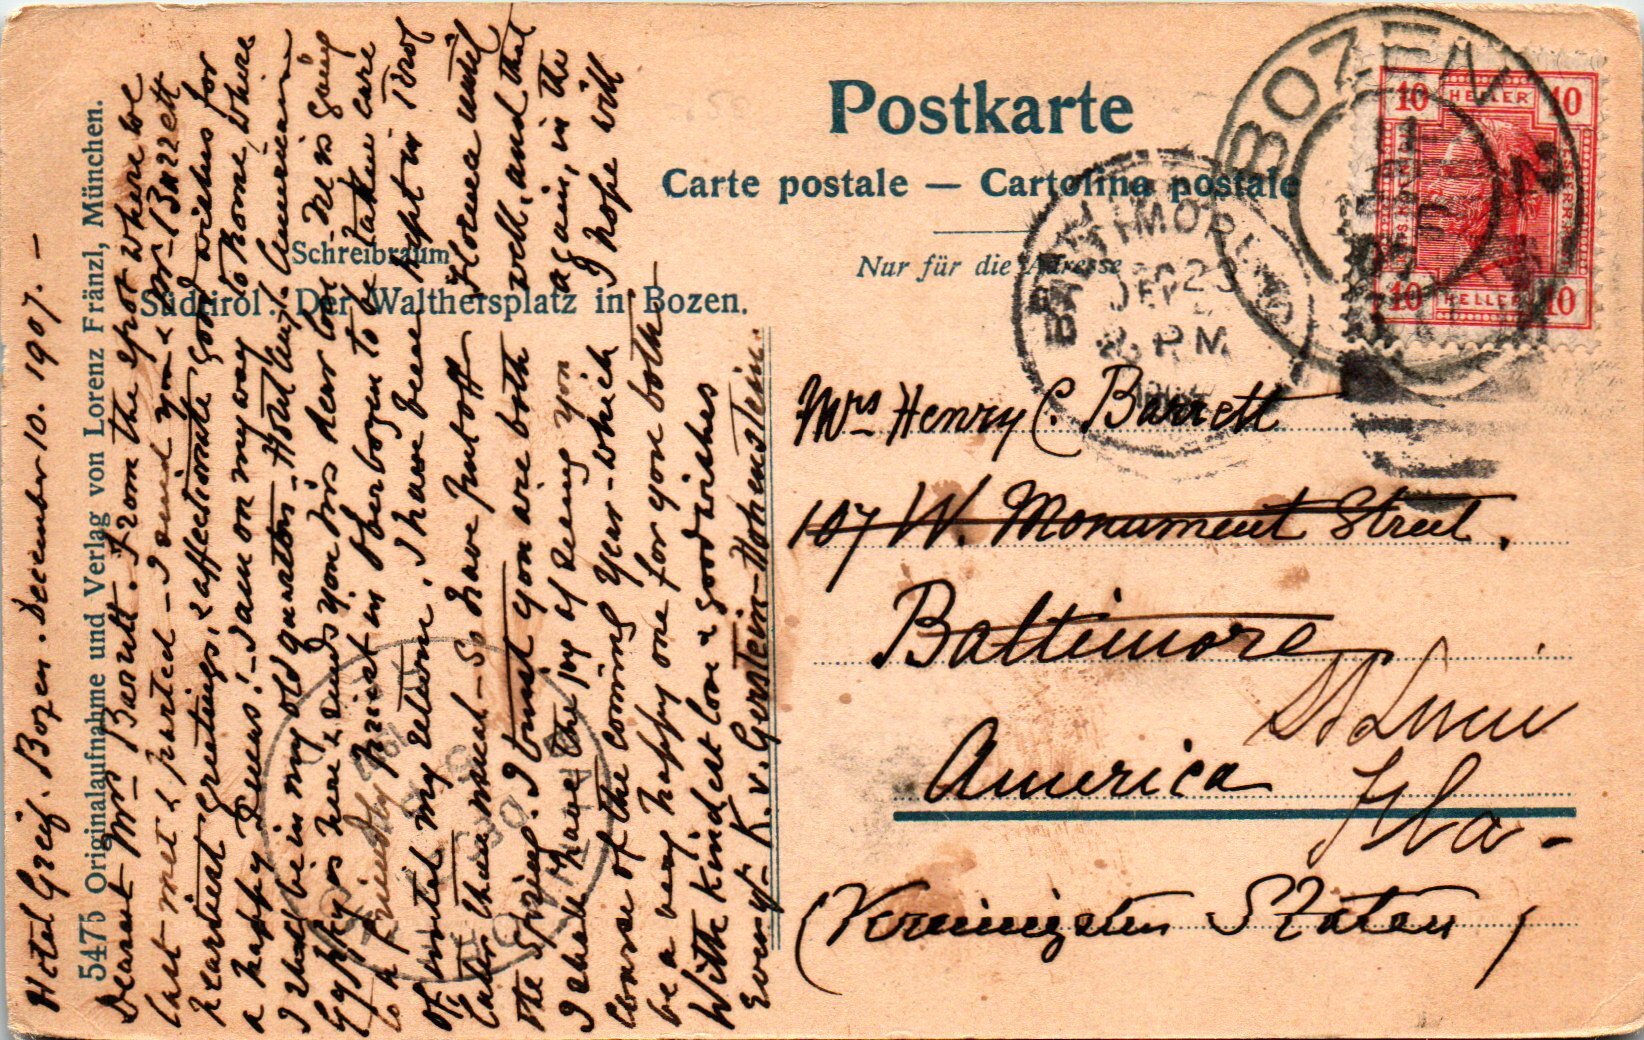 Postkarte
Carte postale — Cartolina postale
Nur für die Adresse
Schreibraum
Südtirol: Der Walthersplatz in Bozen.
5475 Originalaufnahme und Verlag von Lorenz Fränzl, München.
BOZEN
10 HELLER 10
10 HELLER 10
BALTIMORE, MD
DEC 23
PM
Mrs Henry C. Barrett
107 W. Monument Street.
Baltimore
St Lucie
America
Fla-
(Vereinigten Staten)
Hotel Greif. Bozen. December 10. 1907. —
Dearest Mrs Barrett. From the spot where we
last met & parted - I send you & Mr Barrett
heartiest greetings, & affectionate good wishes for
a happy Xmas! - I am on my way to Rome, where
I shall be in my old quarters - Hotel
Gyppy is here & sends you his dear love - He is going
to a friendly Priest in Oberbozen to be taken care
of until my return. I have been kept in Tirol
later than usual - so have put off Florence until
the Spring. I trust you are both well, and that
I shall have the joy of seeing you again, in the
course of the coming Year - which I hope will
be a very happy one for you both
With kindest love & good wishes
Ever yrs K. v. Gerstein-Hohenstein.